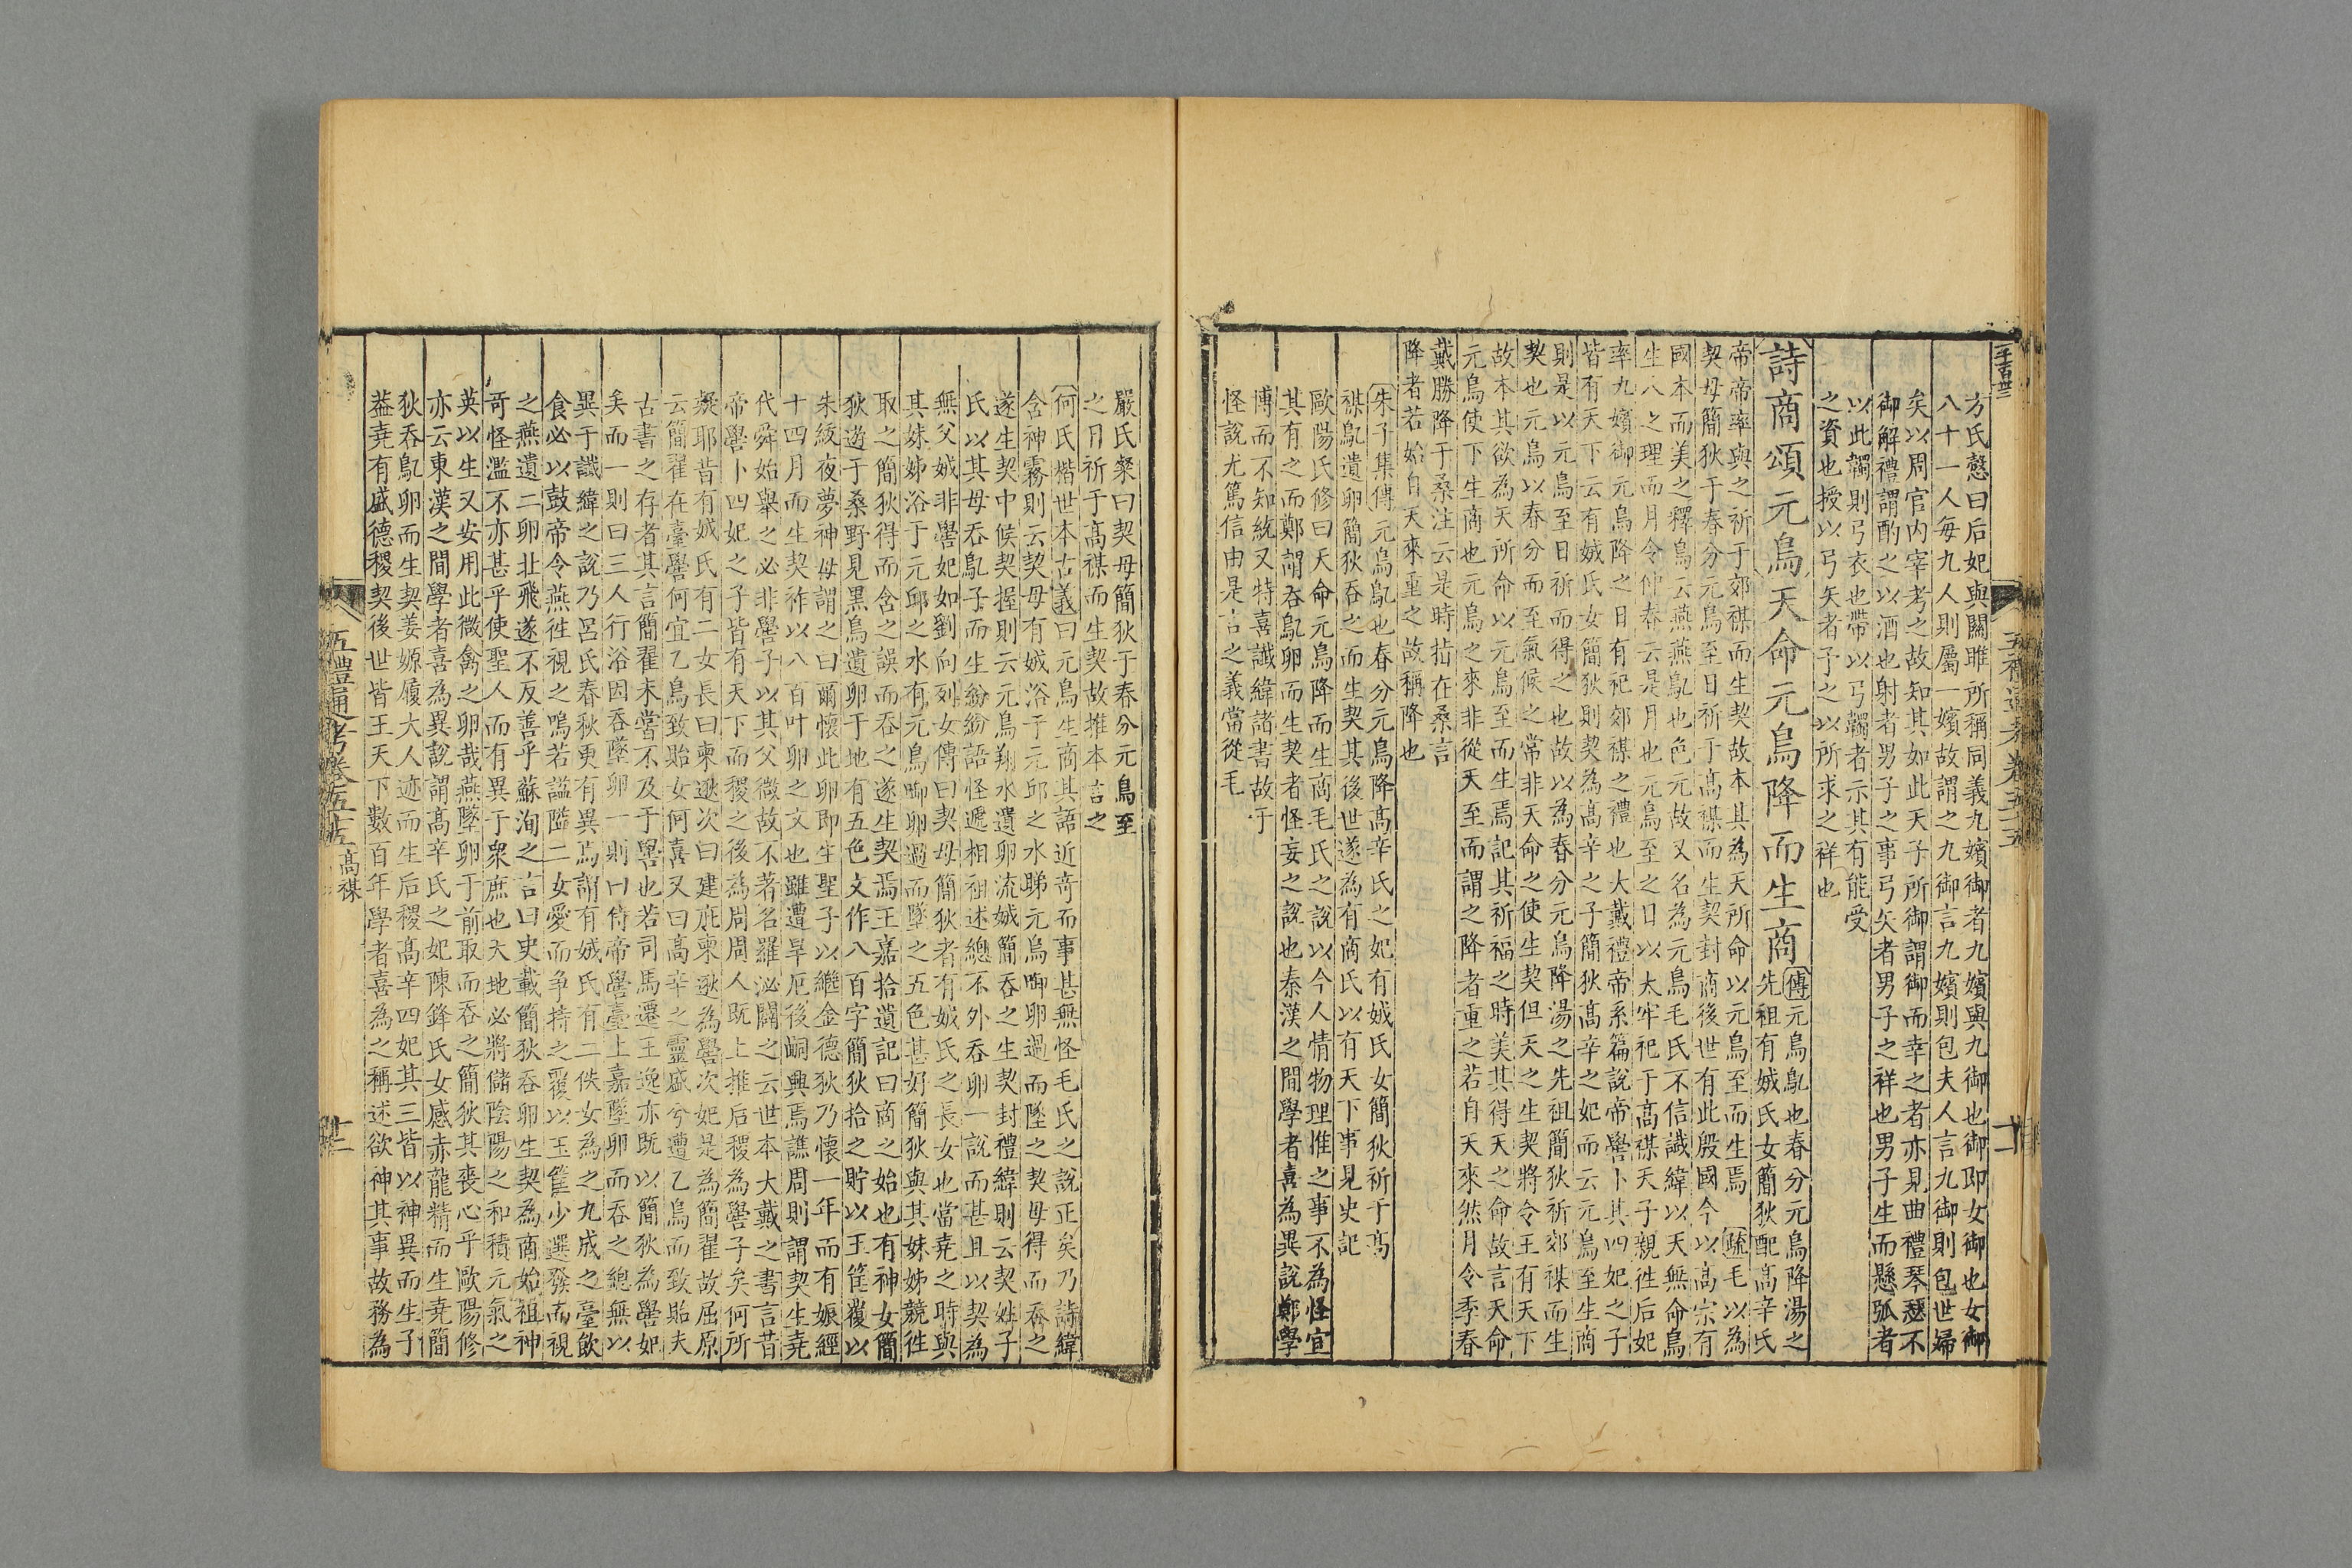 方氏慤曰后妃與關雎所稱同義九嬪御者九嬪與九御也御即女御也女御
八十一人每九人則屬一嬪故謂之九御言九嬪則包夫人言九御則包世婦
矣以周官內宰考之故知其如此天子所御謂御而幸之者亦見曲禮琴瑟不
御解禮謂酌之以酒也射者男子之事弓矢者男子之祥也男子生而懸弧者
以此韣則弓衣也帶以弓韣者示其有能受
之資也授以弓矢者予之以所求之祥也
詩商頌元鳥天命元鳥降而生商
傳元鳥鳦也春分元鳥降湯之
先祖有娀氏女簡狄配高辛氏
帝帝率與之祈于郊禖而生契故本其為天所命以元鳥至而生焉 疏毛以為
契母簡狄于春分元鳥至日祈于高禖而生契封商後世有此殷國今以高宗有
國本而美之釋鳥云燕燕鳦也色元故又名為元鳥毛氏不信讖緯以天無命鳥
生人之理而月令仲春云是月也元鳥至之日以太牢祀于高禖天子親往后妃
率九嬪御元鳥降之日有祀郊禖之禮也大戴禮帝系篇說帝嚳卜其四妃之子
皆有天下云有娀氏女簡狄則契為高辛之子簡狄高辛之妃而云元鳥至生商
則是以元鳥至日祈而得之也故以為春分元鳥降湯之先祖簡狄祈郊禖而生
契也元鳥以春分而至氣候之常非天命之使生契但天之生契將令王有天下
故本其欲為天所命以元鳥至而生焉記其祈福之時美其得天之命故言天命
元鳥使下生商也元鳥之來非從天至而謂之降者重之若自天來然月令季春
戴勝降于桑注云是時指在桑言
降者若始自天來重之故稱降也
朱子集傳元鳥鳦也春分元鳥降高辛氏之妃有娀氏女簡狄祈于高
禖鳦遺卵簡狄吞之而生契其後世遂為有商氏以有天下事見史記
歐陽氏修曰天命元鳥降而生商毛氏之說以今人情物理惟之事不為怪宜
其有之而鄭謂吞鳦卵而生契者怪妄之說也秦漢之間學者喜為異說鄭學
博而不知統又特喜讖緯諸書故于
怪說尤篤信由是言之義當從毛
嚴氏粲曰契母簡狄于春分元鳥至
之月祈于高禖而生契故推本言之
何氏楷世本古義曰元鳥生商其語近奇而事甚無怪毛氏之說正矣乃詩緯
含神霧則云契母有娀浴于元邱之水睇元鳥啣卵過而墜之契母得而吞之
遂生契中候契握則云元鳥翔水遺卵流娀簡吞之生契封禮緯則云契姓子
氏以其母吞鳦子而生紛紛語怪遞相祖述總不外吞卵一說而甚且以契為
無父娀非嚳妃如劉向列女傳曰契母簡狄者有娀氏之長女也當堯之時與
其妹娣浴于元邱之水有元鳥啣卵過而墜之五色甚好簡狄與其妹娣競往
取之簡狄得而含之誤而吞之遂生契焉王嘉拾遺記曰商之始也有神女簡
狄遊于桑野見黑鳥遺卵于地有五色文作八百字簡狄拾之貯以玉筐覆以
朱紱夜夢神母謂之曰爾懷此卵即生聖子以繼金德狄乃懷一年而有娠經
十四月而生契祚以八百叶卵之文也雖遭旱厄後嗣興焉譙周則謂契生堯
代舜始舉之必非嚳子以其父微故不著名羅泌闢之云世本大戴之書言昔
帝嚳卜四妃之子皆有天下而稷之後為周周人既上推后稷為嚳子矣何所
疑耶昔有娀氏有二女長曰柬逖次曰建疵柬逖為嚳次妃是為簡翟故屈原
云簡翟在臺嚳何宜乙鳥致貽女何喜又曰高辛之靈盛兮遭乙鳥而致貽夫
古書之存者其言簡翟未嘗不及于嚳也若司馬遷王逸亦既以簡狄為嚳妃
矣而一則曰三人行浴因吞墜卵一則曰侍帝嚳臺上嘉墜卵而吞之總無以
異于讖緯之說乃呂氏春秋更有異焉謂有娀氏有二佚女為之九成之臺飲
食必以鼓帝令燕往視之鳴若謚隘二女愛而爭持之覆以玉筐少選發而視
之燕遺二卵北飛遂不反善乎蘇洵之言曰史載簡狄吞卵生契為商始祖神
奇怪濫不亦甚乎使聖人而有異于衆庶也天地必將儲陰陽之和積元氣之
英以生又安用此微禽之卵哉燕墜卵于前取而吞之簡狄其喪心乎歐陽修
亦云東漢之間學者喜為異說謂高辛氏之妃陳鋒氏女感赤龍精而生堯簡
狄吞鳦卵而生契姜嫄履大人迹而生后稷高辛四妃其三皆以神異而生子
葢堯有盛德稷契後世皆王天下數百年學者喜為之稱述欲神其事故務為
五禮通考卷五十五 高禖